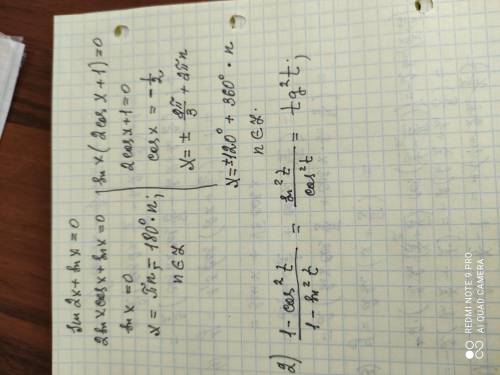 sin 2x + sin x = 0
2 sin x cos x + sin x = 0
sin x (2 cos x + 1) = 0
sin x = 0
x = πn = 180° · n;
n ∈ Z
2 cos x + 1 = 0
cos x = -1/2
x = ± 2π/3 + 2πn
x = ±120° + 360° · n
n ∈ Z.
2) (1 - cos² t)/(1 - sin² t) = (sin² t)/(cos² t) = tg² t.
REDMI NOTE 9 PRO
AI QUAD CAMERA